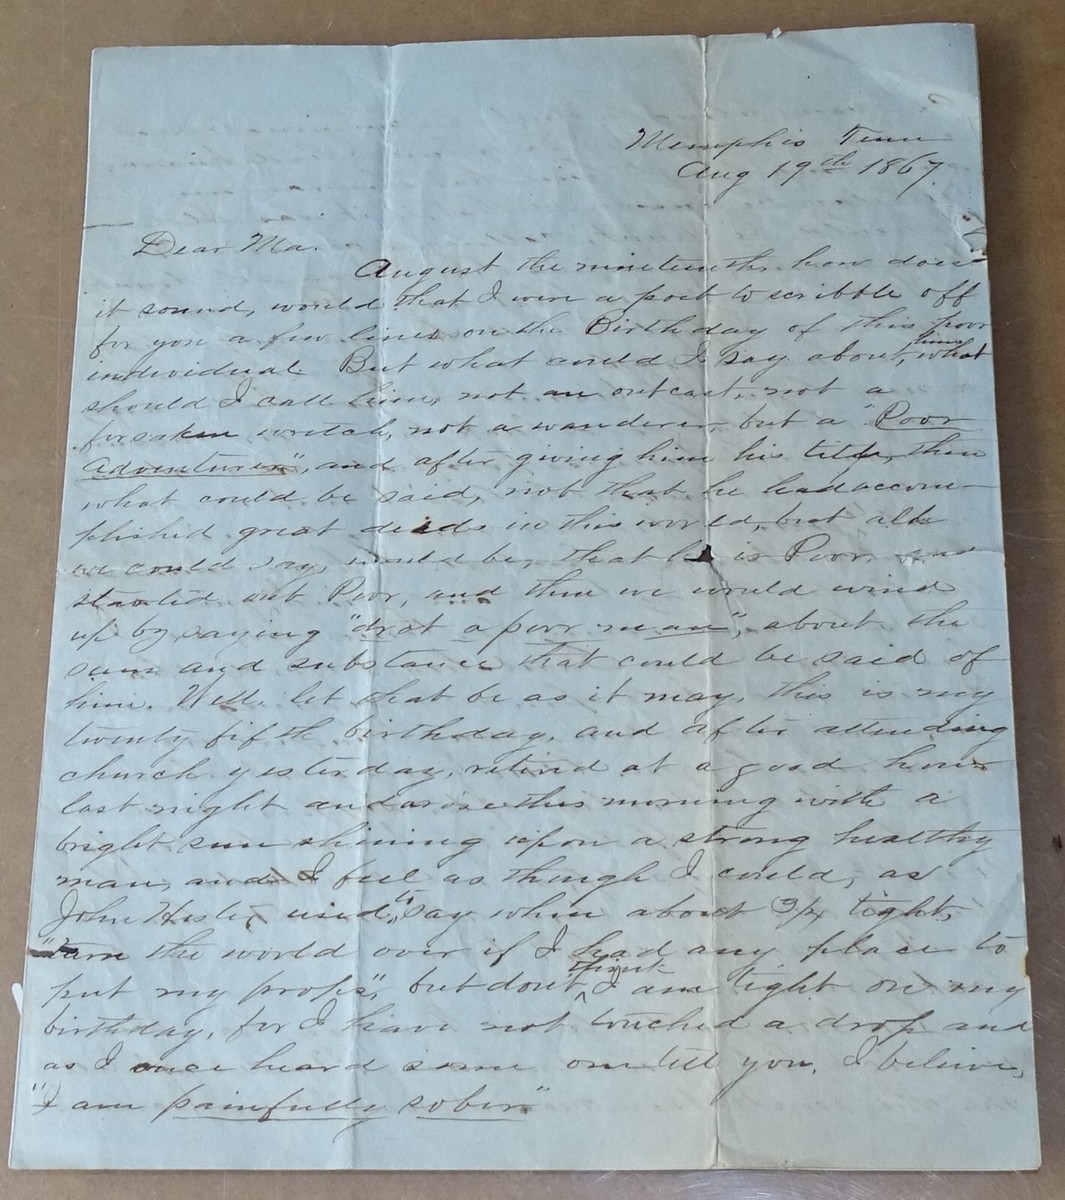 Memphis Tenn
Aug 19th 1867.
Dear Ma.
August the nineteenth, how does
it sound, would that I were a poet to scribble off
for you a few lines on the Birthday of this poor
individual. But what could I say about him, what
should I call him, not an outcast, not a
forsaken wretch, not a wanderer, but a "Poor
adventurer", and after giving him his title, then
what could be said, not that he had accom-
plished great deeds in this world, but all
we could say, would be, that he is Poor, and
started out Poor, and then we would wind
up by saying "drat a poor man", about the
sum and substance that could be said of
him. Well, let that be as it may, this is my
twenty fifth birthday, and after attending
church yesterday, retired at a good hour
last night and arose this morning with a
bright sun shining upon a strong healthy
man, and I feel as though I could, as
John used to say when about 3/4 tight,
"turn the world over if I had any place to
put my props", but dont think I am tight on my
birthday, for I have not touched a drop and
as I once heard some one tell you, I believe,
"I am painfully sober"